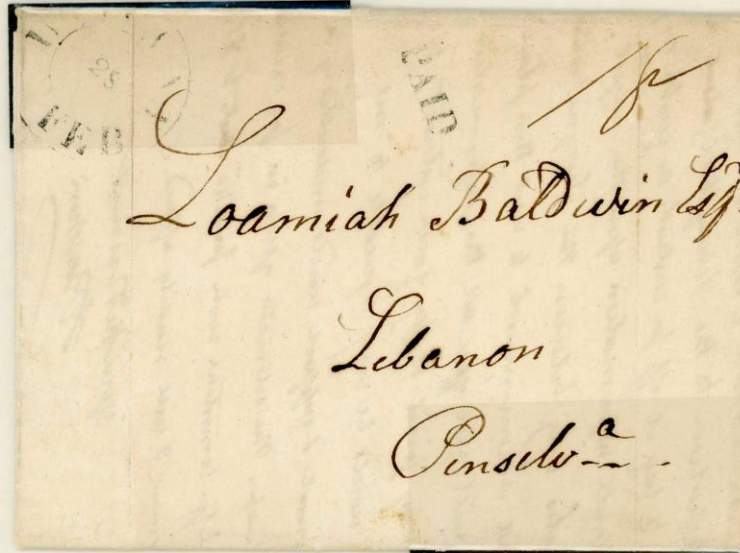 28
FEB
PAID
18
Loamiah Baldwin Esqr
Lebanon
Penselva